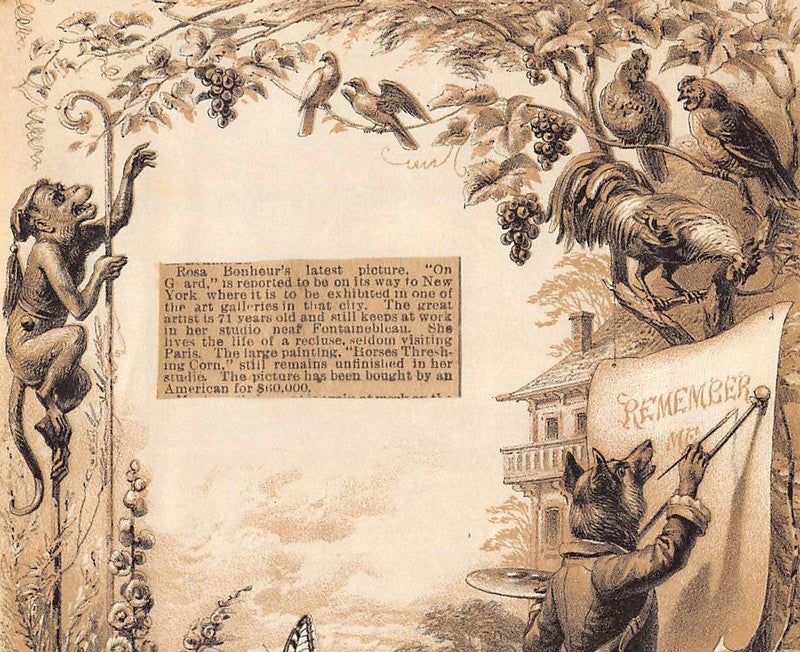 Rosa Bonheur's latest picture, "On
G ard," is reported to be on its way to New
York where it is to be exhibited in one of
the art galleries in that city. The great
artist is 71 years old and still keeps at work
in her studio neaf Fontainebleau. She
lives the life of a recluse, seldom visiting
Paris. The large painting, "Horses Thresh-
ing Corn," still remains unfinished in her
studio. The picture has been bought by an
American for $60,000.
REMEMBER
ME